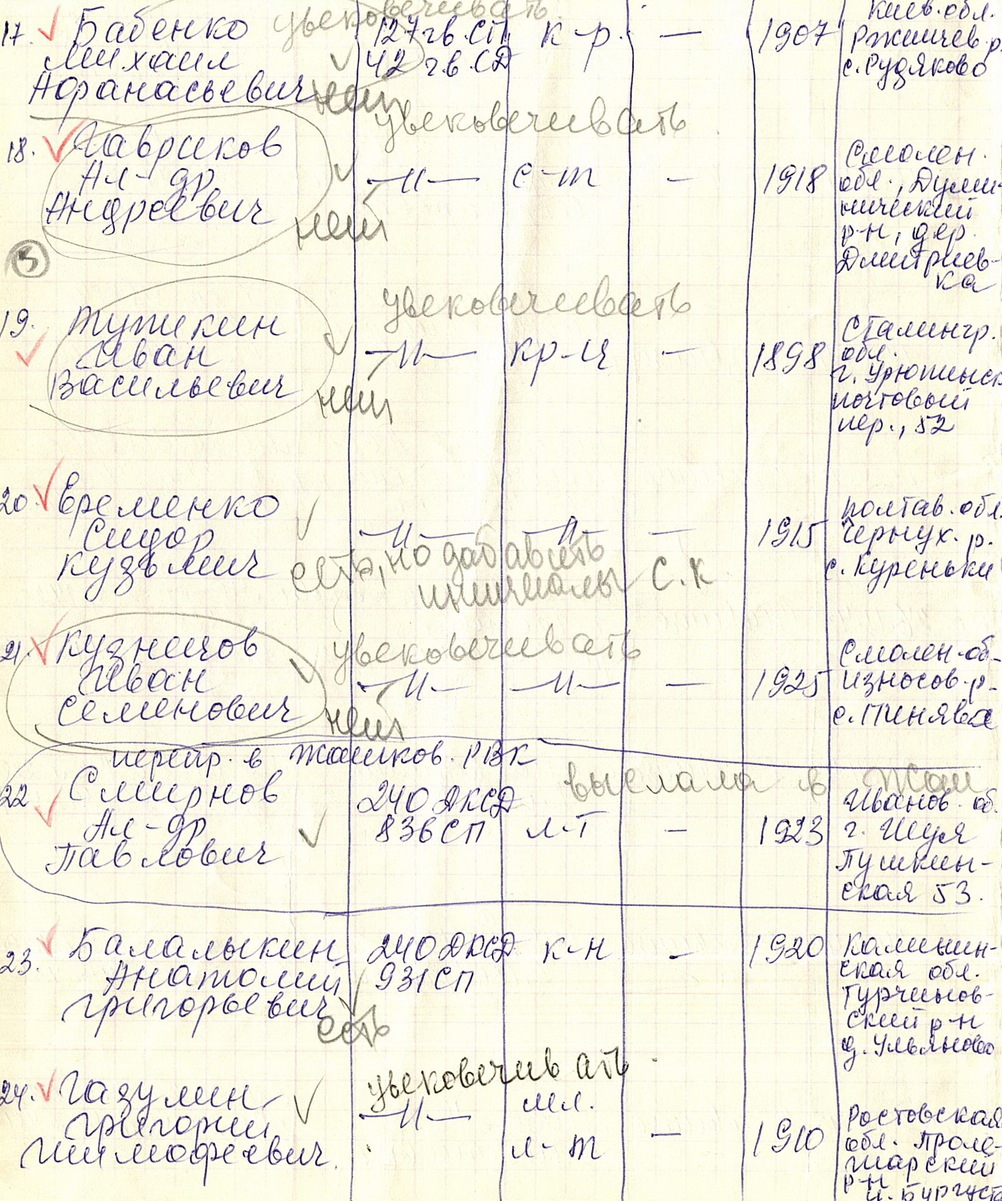 увековечивать
17. Бабенко 127 гв. СП к-р. — 1907 Киев. обл.
Михаил 42 гв. СД Ржищев. р.
Афранасьевич нет с. Рудяково
увековечивать
18. Гавриков
Ал-др —"— с-т — 1918 Смолен.
Андреевич нет обл., Думи-
нический
р-н, дер.
Дмитриев-
ка
3
увековечивать
19. Тупикин Сталингр.
Иван —"— кр-ц — 1898 обл.
Васильевич нет г. Урюпинск
почтовый
пер., 52
20. Еременко Полтав. обл.
Сидор —"— —"— — 1915 Чернух. р.
Кузьмич с. Куреньки
есть, но добавить
инициалы С.К
21. Кузнецов увековечивать Смолен. об-
Иван —"— —"— — 1925 Износов. р-
Семенович нет
перепр. в Жашков. РВК
22 Смирнов 240 ДКСД выслала в Жаш
Ал-др 836 СП л-т — 1923 Иванов. об.
Павлович г. Шуя
Пушкин-
ская 53.
23. Балалыкин 240 ДКСД к-н — 1920 Калинин-
Анатолий 931 СП ская обл.
Григорьевич Турчинов-
есть ский р-н
д. Ульяново
увековечивать
24. Газумин —"— мл.
Григорий л-т — 1910 Ростовская
Тимофеевич. обл. Проле-
тарский
р-н